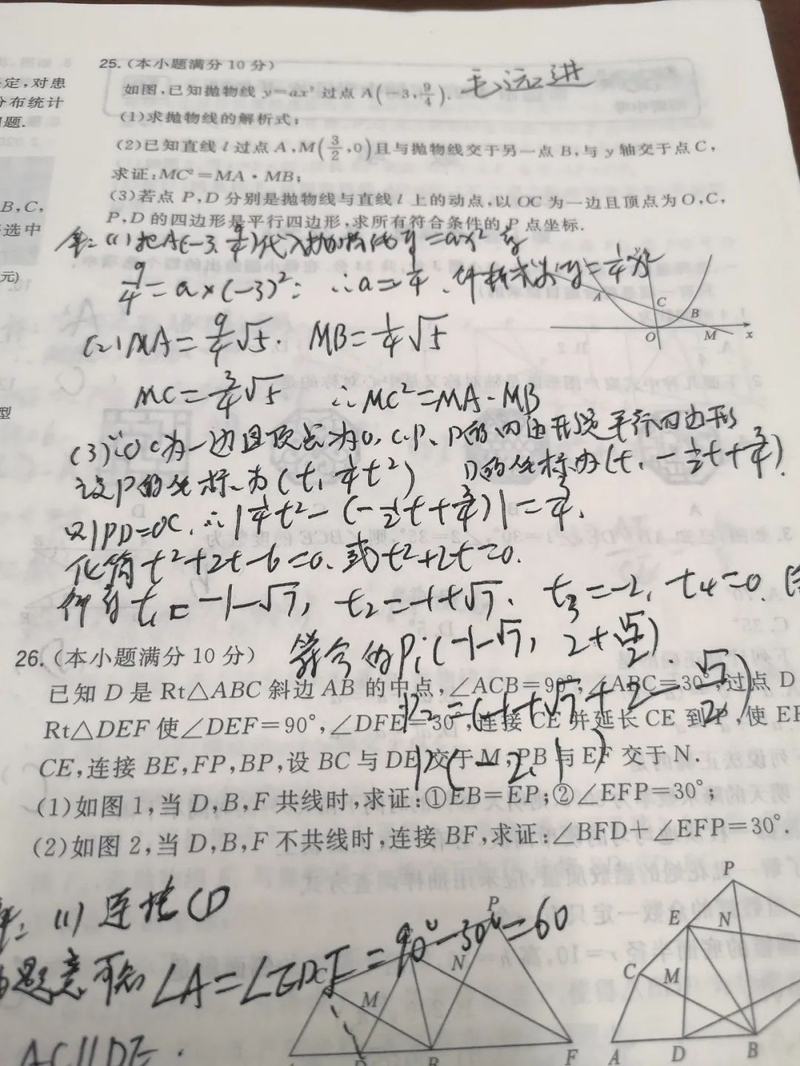 定,对患
分布统计
题.
B,C,
选中
元)
型
25.(本小题满分10分)
如图,已知抛物线 y=ax² 过点 A(-3,9/4). 毛远进
(1)求抛物线的解析式;
(2)已知直线 l 过点 A,M(3/2,0)且与抛物线交于另一点 B,与 y 轴交于点 C,
求证:MC²=MA·MB;
(3)若点 P,D 分别是抛物线与直线 l 上的动点,以 OC 为一边且顶点为 O,C,
P,D 的四边形是平行四边形,求所有符合条件的 P 点坐标.
(1)把A(-3,9/4)代入抛物线 y=ax²
9/4=a×(-3)² ∴a=1/4. y=1/4x²
(2)MA=9/4√5. MB=1/4√5
MC=3/4√5 ∴MC²=MA·MB
(3)以OC为一边且顶点为O,C,P,D的四边形是平行四边形
设P的坐标为(t,1/4t²) D的坐标为(t,-1/2t+3/4).
则PD=OC,∴|1/4t²-(-1/2t+3/4)|=3/4.
化简t²+2t-6=0.或t²+2t=0.
解得t₁=-1-√7, t₂=-1+√7. t₃=-2, t₄=0.
符合的P₁(-1-√7, 2+√7/2).
P₂=(-1+√7, 2-√7/2)
P(-2,1)
A
C
B
O
M
x
26.(本小题满分10分)
已知 D 是 Rt△ABC 斜边 AB 的中点,∠ACB=90°,∠ABC=30°,过点 D
Rt△DEF 使∠DEF=90°,∠DFE=30°,连接 CE 并延长 CE 到 P,使 EP
CE,连接 BE,FP,BP,设 BC 与 DE 交于 M,PB 与 EF 交于 N.
(1)如图 1,当 D,B,F 共线时,求证:①EB=EP;②∠EFP=30°;
(2)如图 2,当 D,B,F 不共线时,连接 BF,求证:∠BFD+∠EFP=30°.
(1)连接CD
题意可知∠A=∠EDF=90°-30°=60
AC∥DE.
P
N
M
D
B
F
P
E
N
C
M
A
D
B